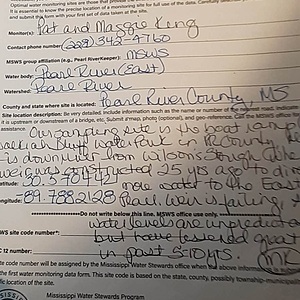 Optimal water monitoring sites are those that
It is essential to know the precise location of a monitoring site for full use of the data. Carefully
and submit this form with your first set of data
Monitor(s): Pat and Maggie King
Contact phone number (228) 342-4760
MSWS group affiliation (e.g., Pearl RiverKeeper): MSWS
Water body: Pearl River (East)
Watershed: Pearl River
County and state where site is located: Pearl River County, MS
Site location description: Be very detailed. Include information such as the name or number of the nearest road, indicate
it is upstream or downstream of a bridge, etc. Submit a map, photo (optional), and geo-reference. Call the MSWS office
assistance. Our sampling site is the boat ramp
Walkiah Bluff Water Park in PR County.
is down river from Wilson's Slough where
weir was constructed 25 yrs ago to di
Latitude: 30. more water to the East
Longitude: 89.7882128 Pearl. Weir is failing,
Do not write below this line, MSWS office use only.
water levels are unpredict
MSWS site code number*: but have lessened great
12 number: in past 5-10 yrs. MK
site code number will be assigned by the Mississippi Water Stewards office when the above information
the first water monitoring data form. This site code is based on the state, county, possibly township
Mississippi Water Stewards Program